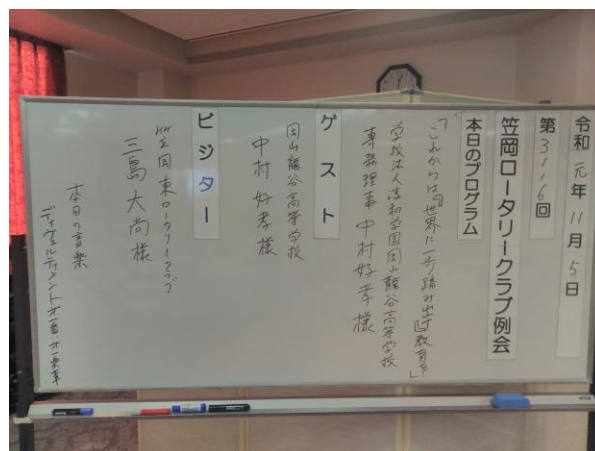 令和元年11月5日
第3116回
笠岡ロータリークラブ例会
本日のプログラム
「これからは『世界に一歩踏み出す』教育を」
学校法人淳和学園岡山龍谷高等学校
専務理事 中村好孝様
ゲスト
岡山龍谷高等学校
中村好孝様
ビジター
笠岡東ロータリークラブ
三島大尚様
本日の音楽
ディヴェルティメント第一番第一楽章